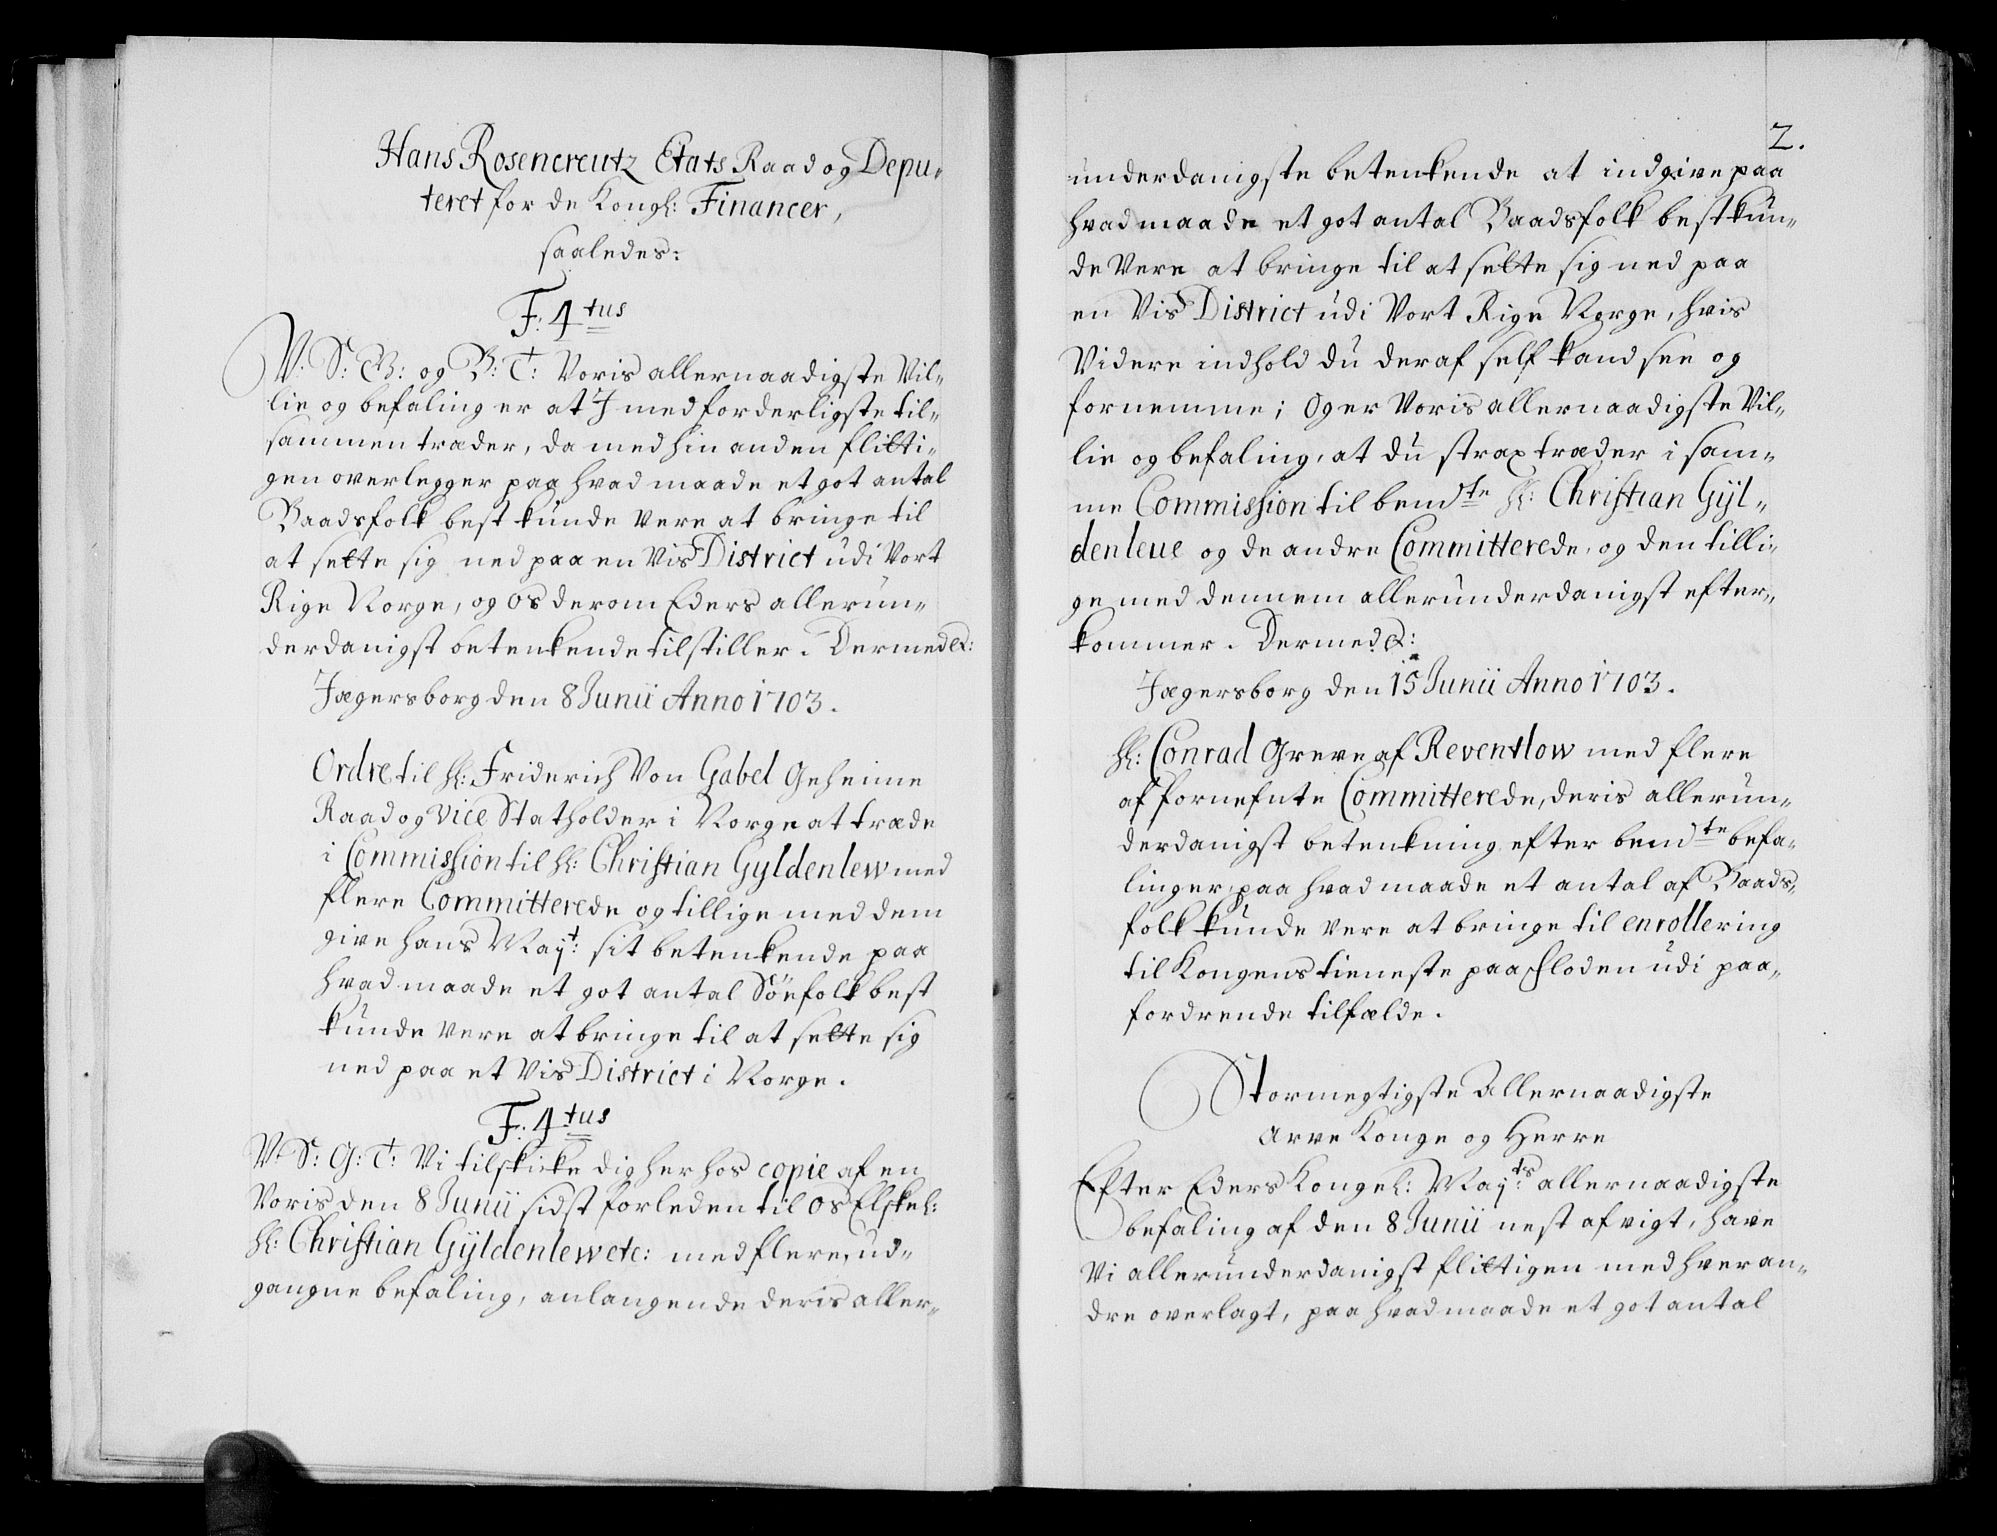 Hans Rosencreutz Etats Raad og Depu-
teret for de Kongl: Financer,
saaledes:
F: 4tus
V. S: G: og B: T: Voris allernaadigste Vil-
lie og befaling er at I med forderligste til-
sammen træder, da med hin anden flitti-
gen overlegger paa hvad maade et got antal
Baadsfolk best kunde vere at bringe til
at sette sig ned paa en Vis District udi Vort
Rige Norge, og os derom Eders allerun-
derdanigst betenkende tilstiller. Dermed &:
Jægersborg den 8 Junii Anno 1703.
Ordre til H: Friderich Von Gabel Geheime
Raad og Vice Statholder i Norge at træde
i Commission til H: Christian Gyldenlew med
flere Committerede og tillige med dem
give hans Mayt: sit betenkende paa
hvad maade et got antal Söefolk best
kunde vere at bringe til at sette sig
ned paa et Vis District i Norge.
F: 4tus
V. S: G: T: Vi tilskicke dig her hos copie af en
Voris den 8 Junii sidst forleden til os Elskel:
H: Christian Gyldenlew etc: med flere, ud-
gangne befaling, anlangende deris aller-
2.
underdanigste betenkende at indgive paa
hvad maade et got antal Baadsfolk best kun-
de Vere at bringe til at sette sig ned paa
en Vis District udi Vort Rige Norge, hvis
Videre indhold du deraf self kand see og
fornemme; Og er Voris allernaadigste Vil-
lie og befaling, at du strax træder i sam-
me Commission til bemdte H: Christian Gyl-
denleue og de andre Committerede, og den tilli-
ge med dennem allerunderdanigst efter-
kommer. Dermed &:
Jægersborg den 15 Junii Anno 1703.
H: Conrad Greve af Reventlow med flere
af fornefnte Committerede, deris allerun-
derdanigst betenkning efter bemdte befa-
linger, paa hvad maade et antal af Baads-
folk kunde vere at bringe til enrollering
til Kongens tieneste paa Floden udi paa-
fordrende tilfælde.
Stormegtigste Allernaadigste
Arve Konge og Herre
Efter Eders Kongel: Mayts: allernaadigste
befaling af den 8 Junii nest afvigt, have
Vi allerunderdanigst flittigen med hveran-
dre overlagt, paa hvad maade et got antal